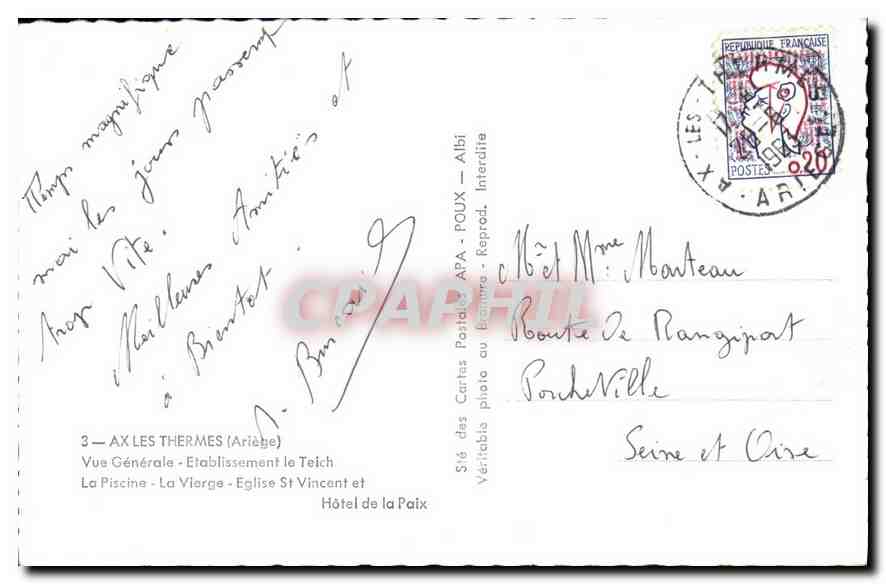 Temps magnifique
mai les jours passent
trop Vite.
Meilleures Amitiés et
à Bientot.
3 — AX LES THERMES (Ariège)
Vue Générale - Etablissement le Teich
La Piscine - La Vierge - Eglise St Vincent et
Hôtel de la Paix
Sté des Cartes Postales APA - POUX — Albi
Véritable photo au Bromure - Reprod. Interdite
CPAPHIL
REPUBLIQUE FRANÇAISE
0,20
POSTES
AX - LES - THERMES
ARIEGE
Mr et Mme Monteau
Route De Rangiport
PorcheVille
Seine et Oise